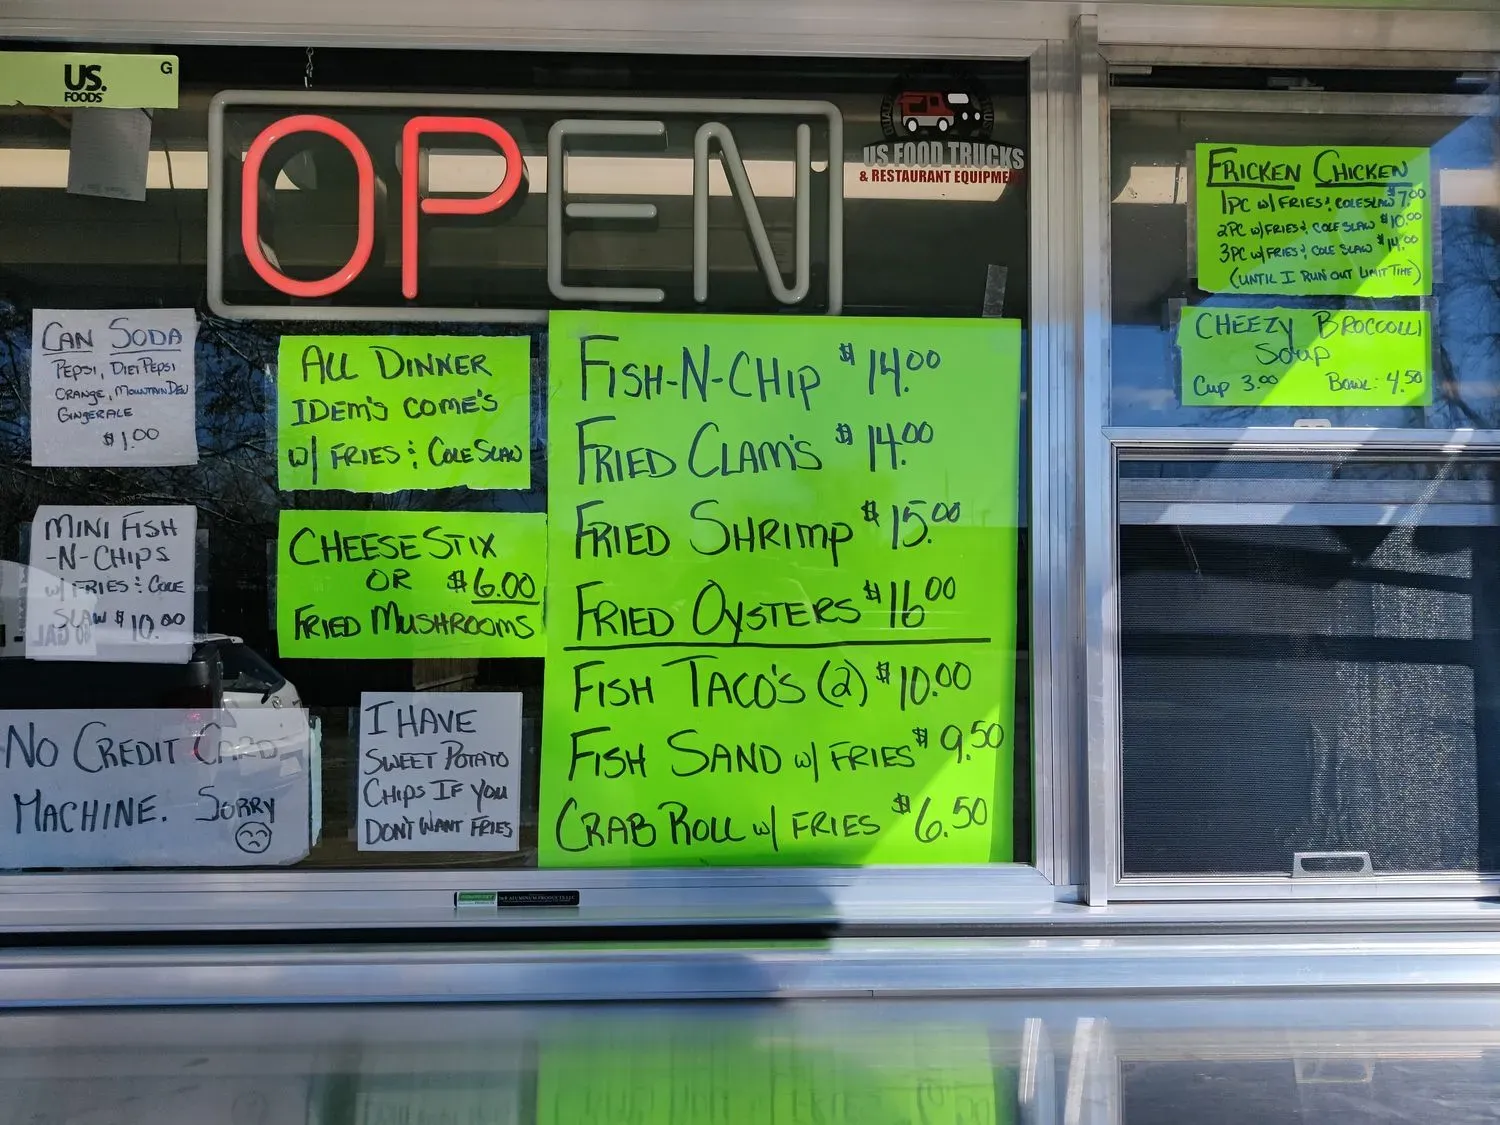 US.
FOODS
G
OPEN
US FOOD TRUCKS
& RESTAURANT EQUIPMEN
CAN SODA
PEPSI, DIET PEPSI
ORANGE, MOUNTAIN DEW
GINGERALE
$1.00
MINI FISH
-N-CHIPS
W/ FRIES & COLE
SLAW $10.00
NO CREDIT CARD
MACHINE. SORRY
ALL DINNER
IDEM'S COME'S
W/ FRIES & COLE SLAW
CHEESE STIX
OR $6.00
FRIED MUSHROOMS
I HAVE
SWEET POTATO
CHIPS IF YOU
DON'T WANT FRIES
FISH-N-CHIP $14.00
FRIED CLAM'S $14.00
FRIED SHRIMP $15.00
FRIED OYSTERS $16.00
FISH TACO'S (2) $10.00
FISH SAND W/ FRIES $9.50
CRAB ROLL W/ FRIES $6.50
FRICKEN CHICKEN
1PC W/ FRIES & COLESLAW $7.00
2PC W/ FRIES & COLE SLAW $10.00
3PC W/ FRIES & COLE SLAW $14.00
(UNTIL I RUN OUT LIMIT TIME)
CHEEZY BROCCOLLI
SOUP
CUP 3.00 BOWL: 4.50